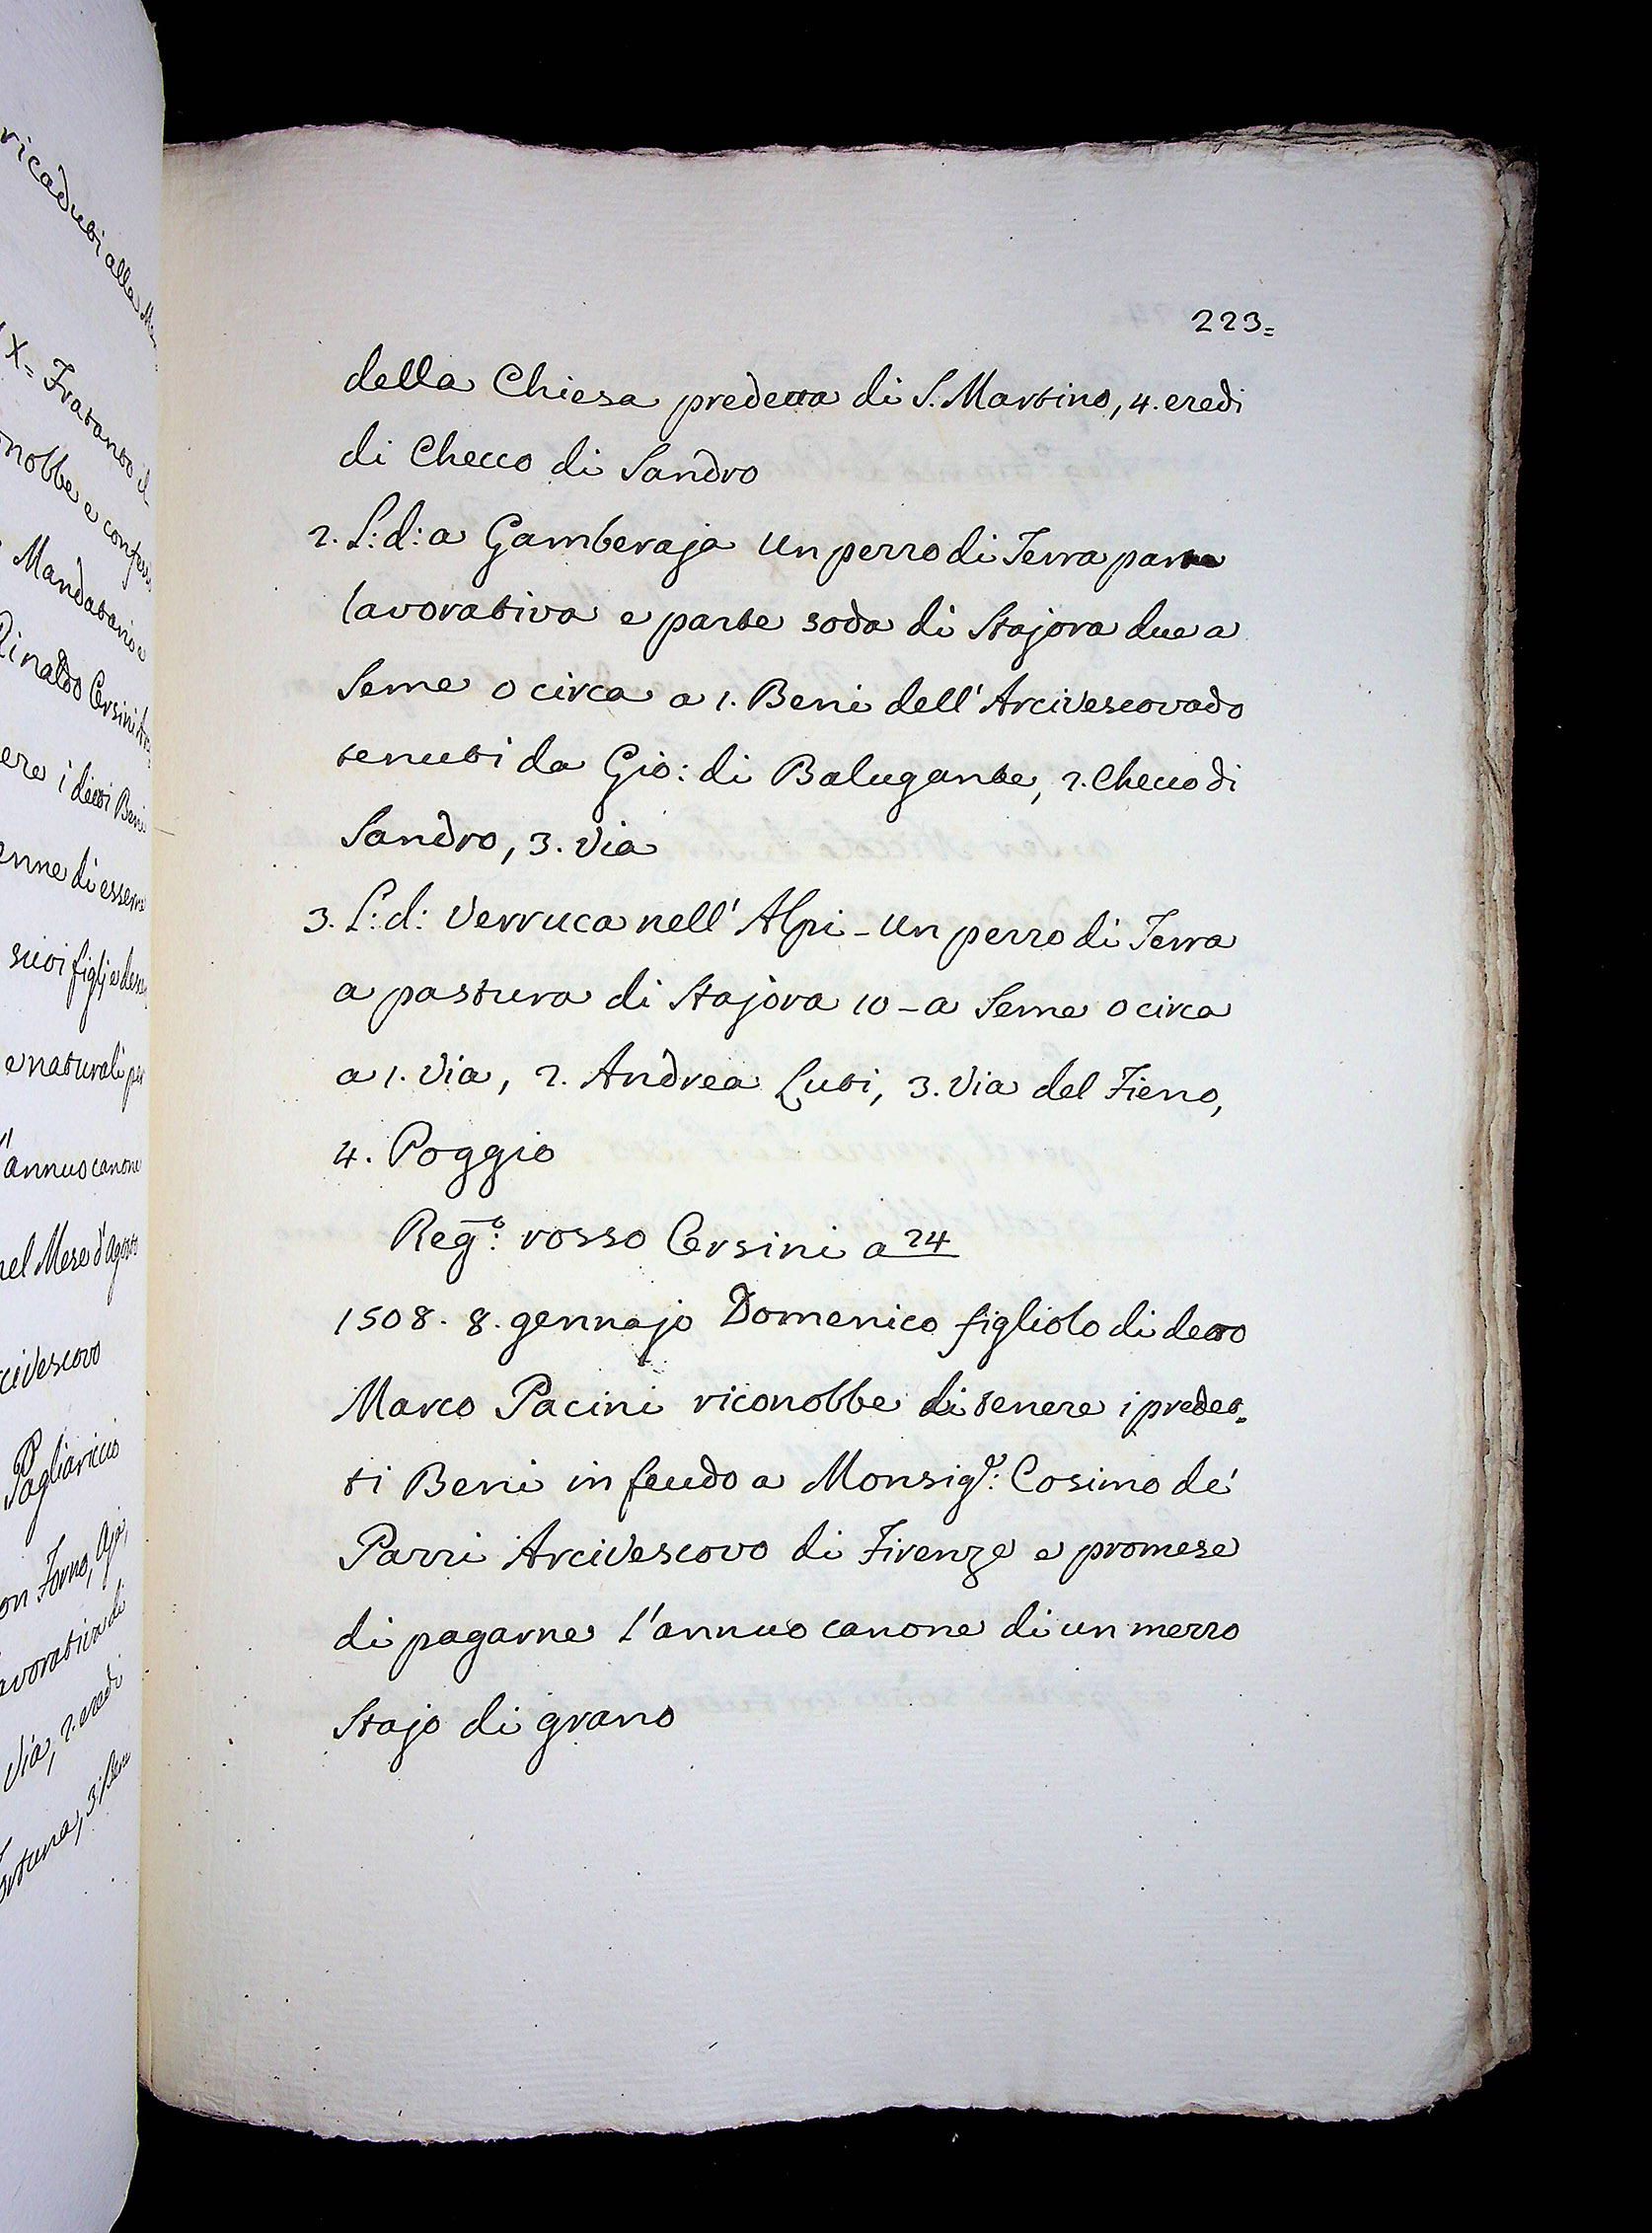 223=
della Chiesa predetta di S. Martino, 4. eredi
di Checco di Sandro
2. L: d: a Gamberaja Un pezzo di Terra parte
lavorativa e parte soda di Stajora due a
Seme o circa a 1. Beni dell' Arcivescovado
tenuti da Gio: di Balugante, 2. Checco di
Sandro, 3. Via
3. L: d: Verruca nell' Alpi - Un pezzo di Terra
a pastura di Stajora 10 - a Seme o circa
a 1. Via, 2. Andrea Luti, 3. Via del Fieno,
4. Poggio
Reg:º rosso Corsini a 24
1508. 8. gennajo Domenico figliolo di detto
Marco Pacini riconobbe di tenere i predet=
ti Beni in feudo a Monsig:r Cosimo de'
Pazzi Arcivescovo di Firenze e promese
di pagarne l'annuo canone di un mezzo
Stajo di grano
ricaduti alla
X= Trattanto il
Mandatario
Rinaldo Corsini
i detti Beni
di essere
suoi figlj e
e naturali per
annuo canone
Mese d'Agosto
Pagliariccio
Forno, Aja,
Via, 2. eredi